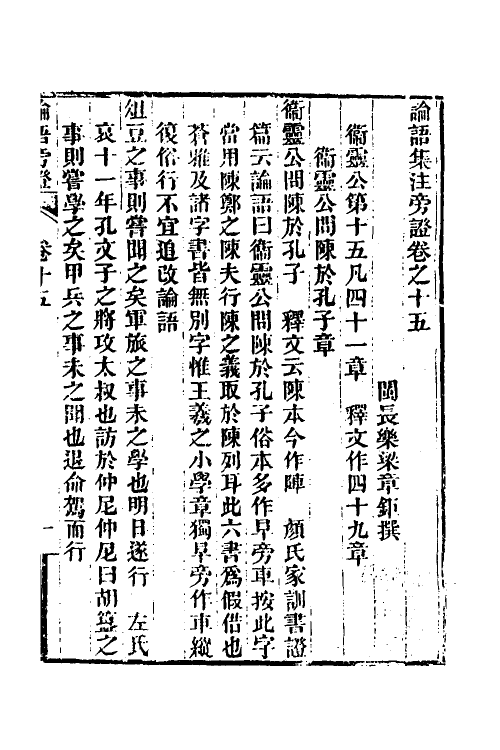 論語集注旁證卷之十五
閩長樂梁章鉅撰
衞靈公第十五凡四十一章　釋文作四十九章
衞靈公問陳於孔子章
衞靈公問陳於孔子　釋文云陳本今作陣　顏氏家訓書證
篇云論語曰衞靈公問陳於孔子俗本多作阜旁車按此字
當用陳鄭之陳夫行陳之義取於陳列耳此六書爲假借也
蒼雅及諸字書皆無別字惟王羲之小學章獨阜旁作車縱
復俗行不宜追改論語
俎豆之事則嘗聞之矣軍旅之事未之學也明日遂行　左氏
哀十一年孔文子之將攻太叔也訪於仲尼仲尼曰胡簋之
事則嘗學之矣甲兵之事未之聞也退命駕而行
論語旁證　卷十五　一